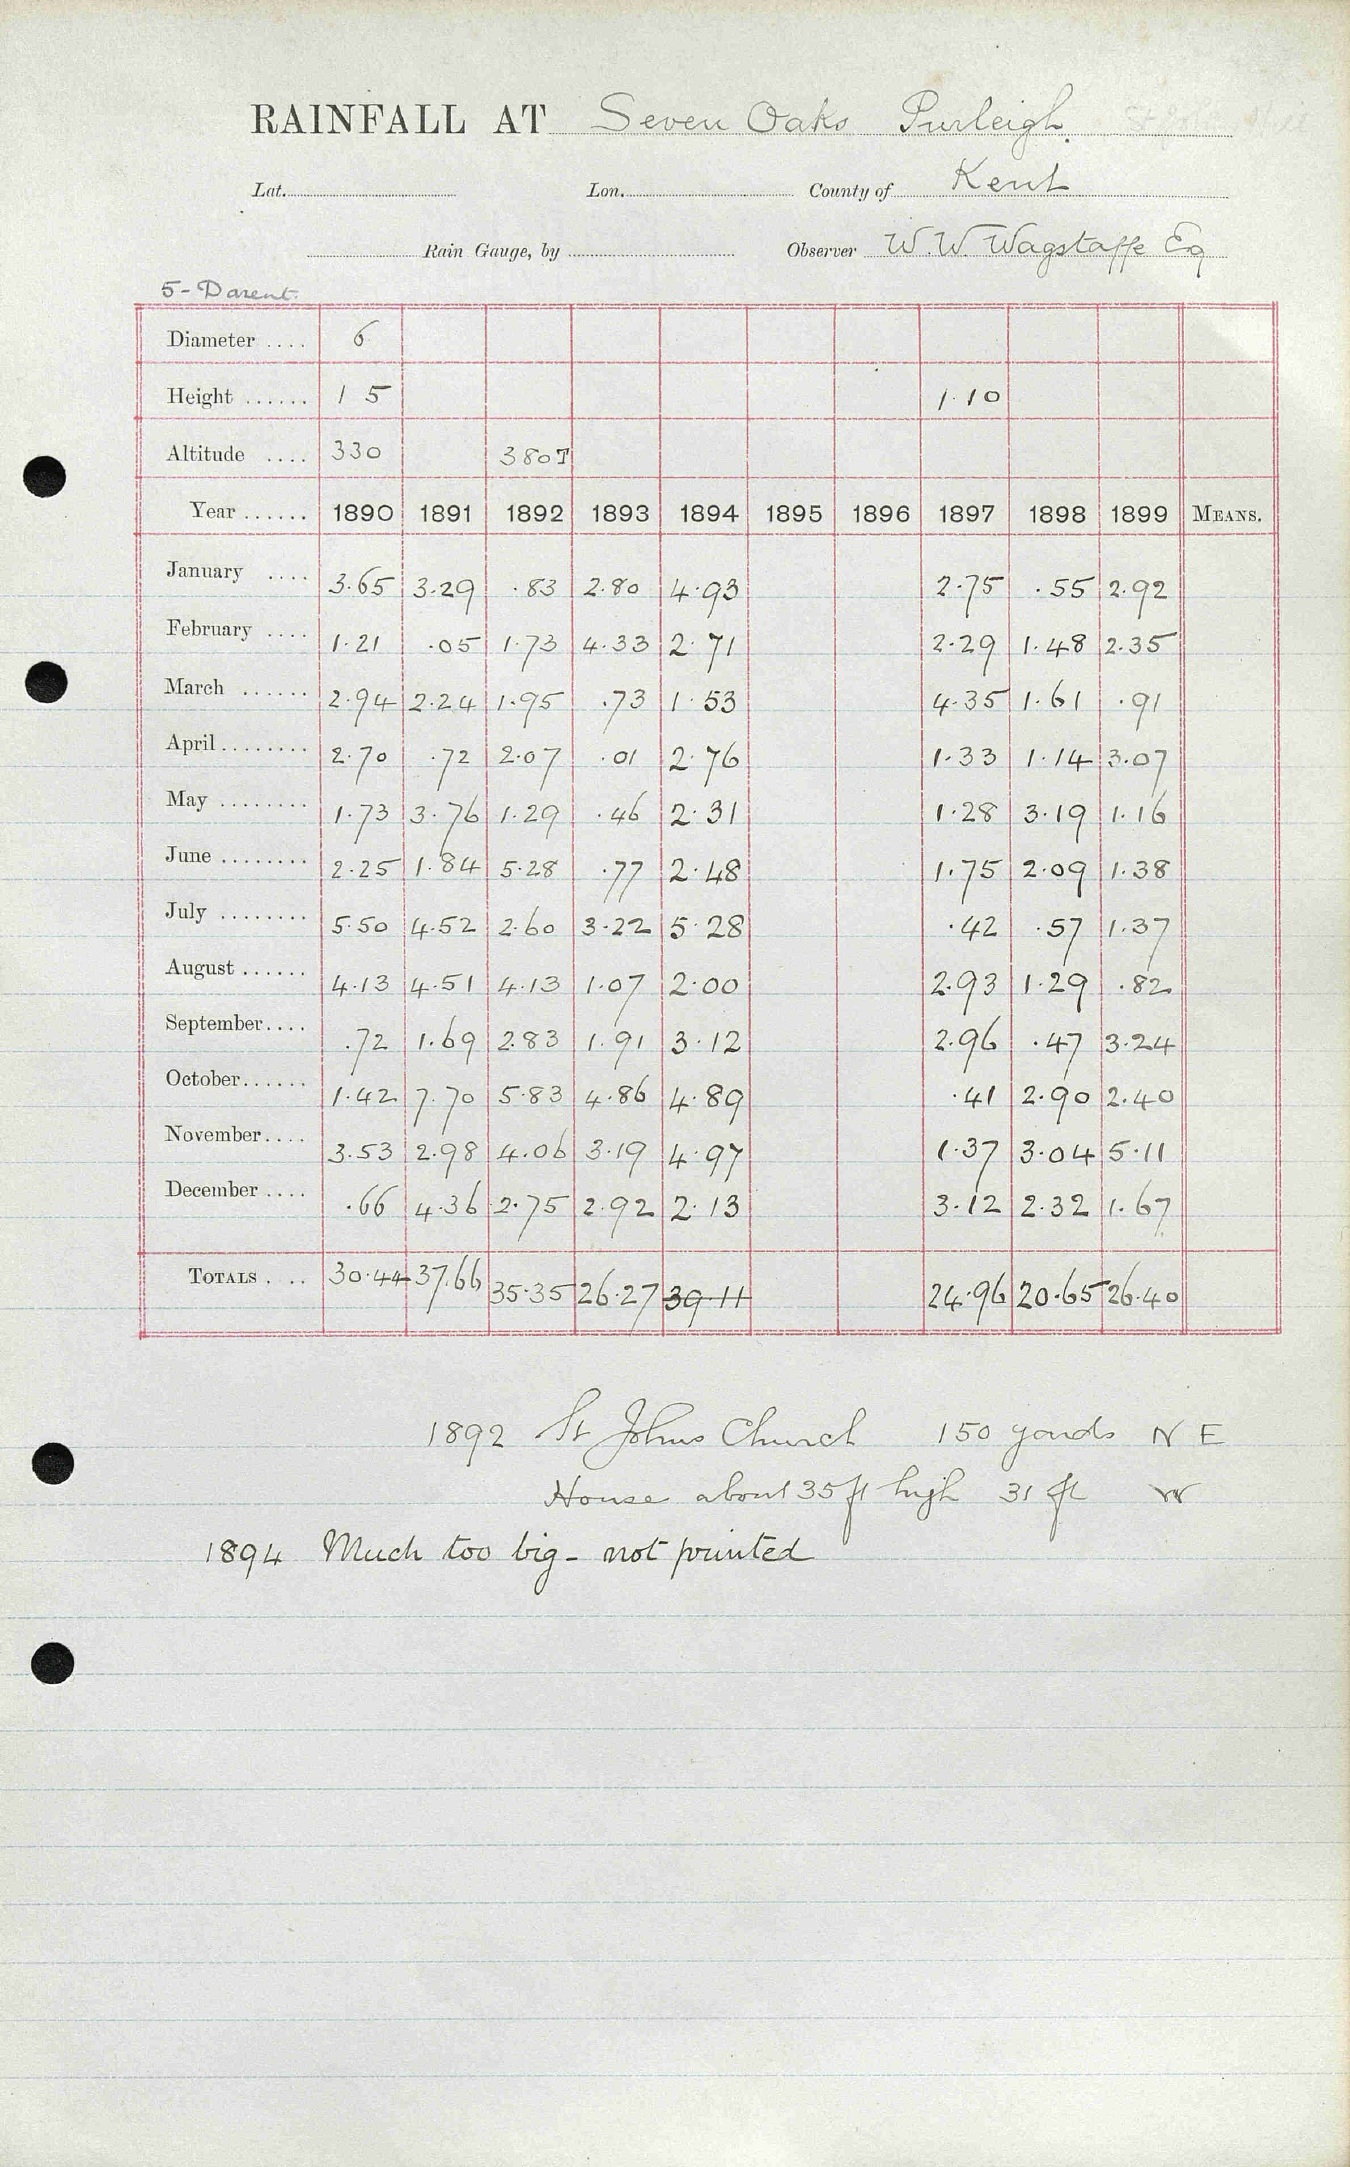 RAINFALL AT Seven Oaks Purleigh St Johns Hill
Lat. Lon. County of Kent
Rain Gauge, by Observer W. W Wagstaffe Eq
5 - Darent.
Diameter .... 6
Height ...... 1 5 1.10
Altitude .... 330 380T
Year ...... 1890 1891 1892 1893 1894 1895 1896 1897 1898 1899 MEANS.
January .... 3.65 3.29 .83 2.80 4.93 2.75 .55 2.92
February .... 1.21 .05 1.73 4.33 2.71 2.29 1.48 2.35
March ...... 2.94 2.24 1.95 .73 1.53 4.35 1.61 .91
April ........ 2.70 .72 2.07 .01 2.76 1.33 1.14 3.07
May ........ 1.73 3.76 1.29 .46 2.31 1.28 3.19 1.16
June ........ 2.25 1.84 5.28 .77 2.48 1.75 2.09 1.38
July ........ 5.50 4.52 2.60 3.22 5.28 .42 .57 1.37
August ...... 4.13 4.51 4.13 1.07 2.00 2.93 1.29 .82
September.... .72 1.69 2.83 1.91 3.12 2.96 .47 3.24
October...... 1.42 7.70 5.83 4.86 4.89 .41 2.90 2.40
November.... 3.53 2.98 4.06 3.19 4.97 1.37 3.04 5.11
December .... .66 4.36 2.75 2.92 2.13 3.12 2.32 1.67
TOTALS .... 30.44 37.66 35.35 26.27 39.11 24.96 20.65 26.40
1892 St Johns Church 150 yards N E
House about 35 ft high 31 ft W
1894 Much too big - not printed